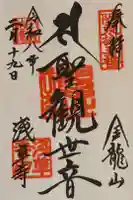 奉拝
金龍山
聖観世音
令和八年
二月十九日
浅草寺